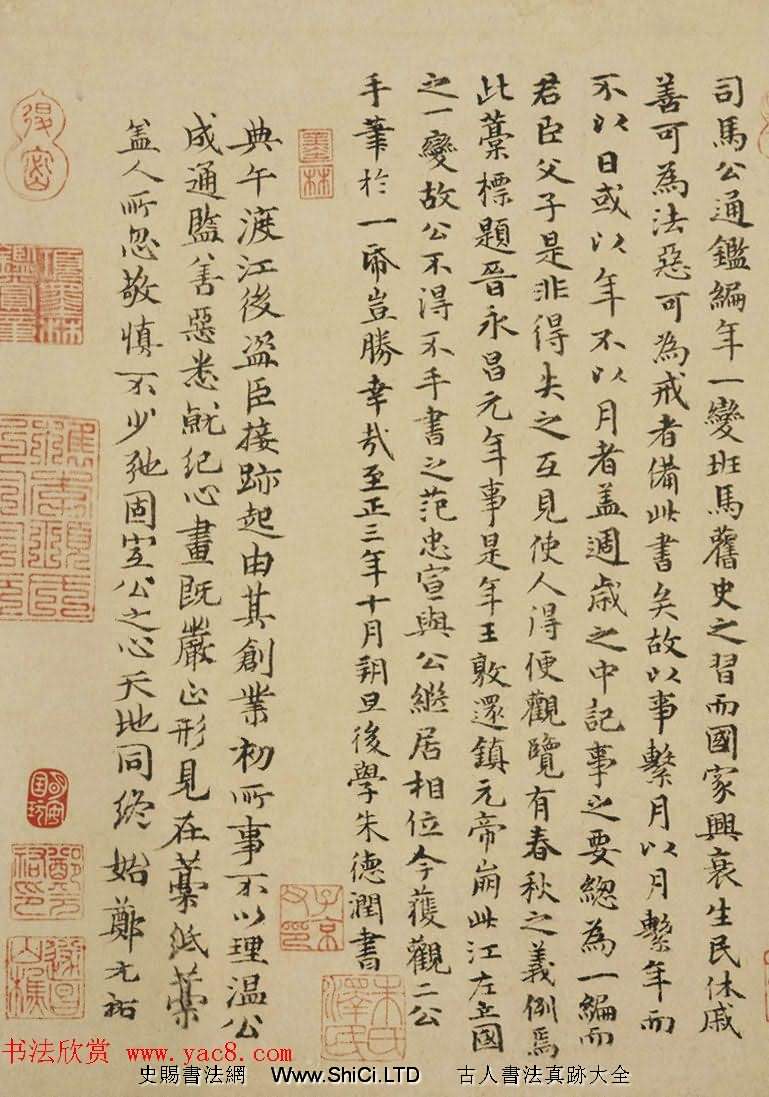 司馬公通鑑編年一變班馬舊史之習而國家興衰生民休戚
善可為法惡可為戒者備此書矣故以事繫月以月繫年而
不以日或以年不以月者蓋週歲之中記事之要總為一編而
君臣父子是非得失之互見使人得便觀覽有春秋之義例焉
此藁標題晉永昌元年事是年王敦還鎮元帝崩此江左立國
之一變故公不得不手書之范忠宣與公繼居相位今獲觀二公
手筆於一帋豈勝幸哉至正三年十月朔旦後學朱德潤書
墨林
子京
朱氏澤民
典午渡江後盜臣接跡起由其創業初所事不以理溫公
成通監善惡悉就紀心畫既嚴正形見在藁紙藁
蓋人所忽敬慎不少弛固宜公之心天地同終始鄭元祐
项墨林鑑賞章
蕉林
鄭元祐印
书法欣赏 www.yac8.com
史賜書法網 Www.ShiCi.LTD 古人書法真跡大全